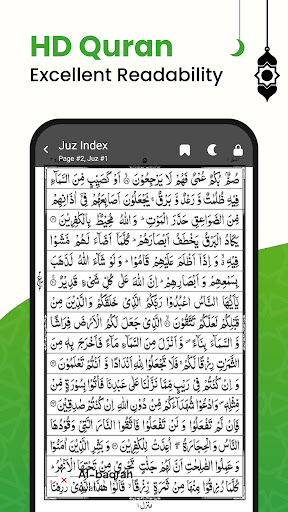 HD Quran
Excellent Readability
Juz Index
Page #2, Juz #1
صُمٌّۢ بُكْمٌ عُمْیٌ فَهُمْ لَا یَرْجِعُوْنَ ۙ اَوْ كَصَیِّبٍ مِّنَ السَّمَآءِ
فِیْهِ ظُلُمٰتٌ وَّ رَعْدٌ وَّ بَرْقٌ ۚ یَجْعَلُوْنَ اَصَابِعَهُمْ فِیْۤ اٰذَانِهِمْ
مِّنَ الصَّوَاعِقِ حَذَرَ الْمَوْتِ ؕ وَ اللّٰهُ مُحِیْطٌۢ بِالْكٰفِرِیْنَ
یَكَادُ الْبَرْقُ یَخْطَفُ اَبْصَارَهُمْ ؕ كُلَّمَاۤ اَضَآءَ لَهُمْ مَّشَوْا
فِیْهِ ۙ وَ اِذَاۤ اَظْلَمَ عَلَیْهِمْ قَامُوْا ؕ وَ لَوْ شَآءَ اللّٰهُ لَذَهَبَ
بِسَمْعِهِمْ وَ اَبْصَارِهِمْ ؕ اِنَّ اللّٰهَ عَلٰى كُلِّ شَیْءٍ قَدِیْرٌ
یٰۤاَیُّهَا النَّاسُ اعْبُدُوْا رَبَّكُمُ الَّذِیْ خَلَقَكُمْ وَ الَّذِیْنَ مِنْ
قَبْلِكُمْ لَعَلَّكُمْ تَتَّقُوْنَ ۙ الَّذِیْ جَعَلَ لَكُمُ الْاَرْضَ فِرَاشًا وَّ
السَّمَآءَ بِنَآءً ۪ وَّ اَنْزَلَ مِنَ السَّمَآءِ مَآءً فَاَخْرَجَ بِهٖ مِنَ
الثَّمَرٰتِ رِزْقًا لَّكُمْ ۚ فَلَا تَجْعَلُوْا لِلّٰهِ اَنْدَادًا وَّ اَنْتُمْ تَعْلَمُوْنَ
وَ اِنْ كُنْتُمْ فِیْ رَیْبٍ مِّمَّا نَزَّلْنَا عَلٰى عَبْدِنَا فَاْتُوْا بِسُوْرَةٍ مِّنْ
مِّثْلِهٖ ۪ وَ ادْعُوْا شُهَدَآءَكُمْ مِّنْ دُوْنِ اللّٰهِ اِنْ كُنْتُمْ صٰدِقِیْنَ
فَاِنْ لَّمْ تَفْعَلُوْا وَ لَنْ تَفْعَلُوْا فَاتَّقُوا النَّارَ الَّتِیْ وَ قُوْدُهَا
النَّاسُ وَ الْحِجَارَةُ ۖۚ اُعِدَّتْ لِلْكٰفِرِیْنَ وَ بَشِّرِ الَّذِیْنَ اٰمَنُوْا
وَ عَمِلُوا الصّٰلِحٰتِ اَنَّ لَهُمْ جَنّٰتٍ تَجْرِیْ مِنْ تَحْتِهَا الْاَنْهٰرُ ؕ
كُلَّمَا رُزِقُوْا مِنْهَا مِنْ ثَمَرَةٍ رِّزْقًا ۙ قَالُوْا هٰذَا الَّذِیْ رُزِقْنَا
Al-baqrah
منزل ۱